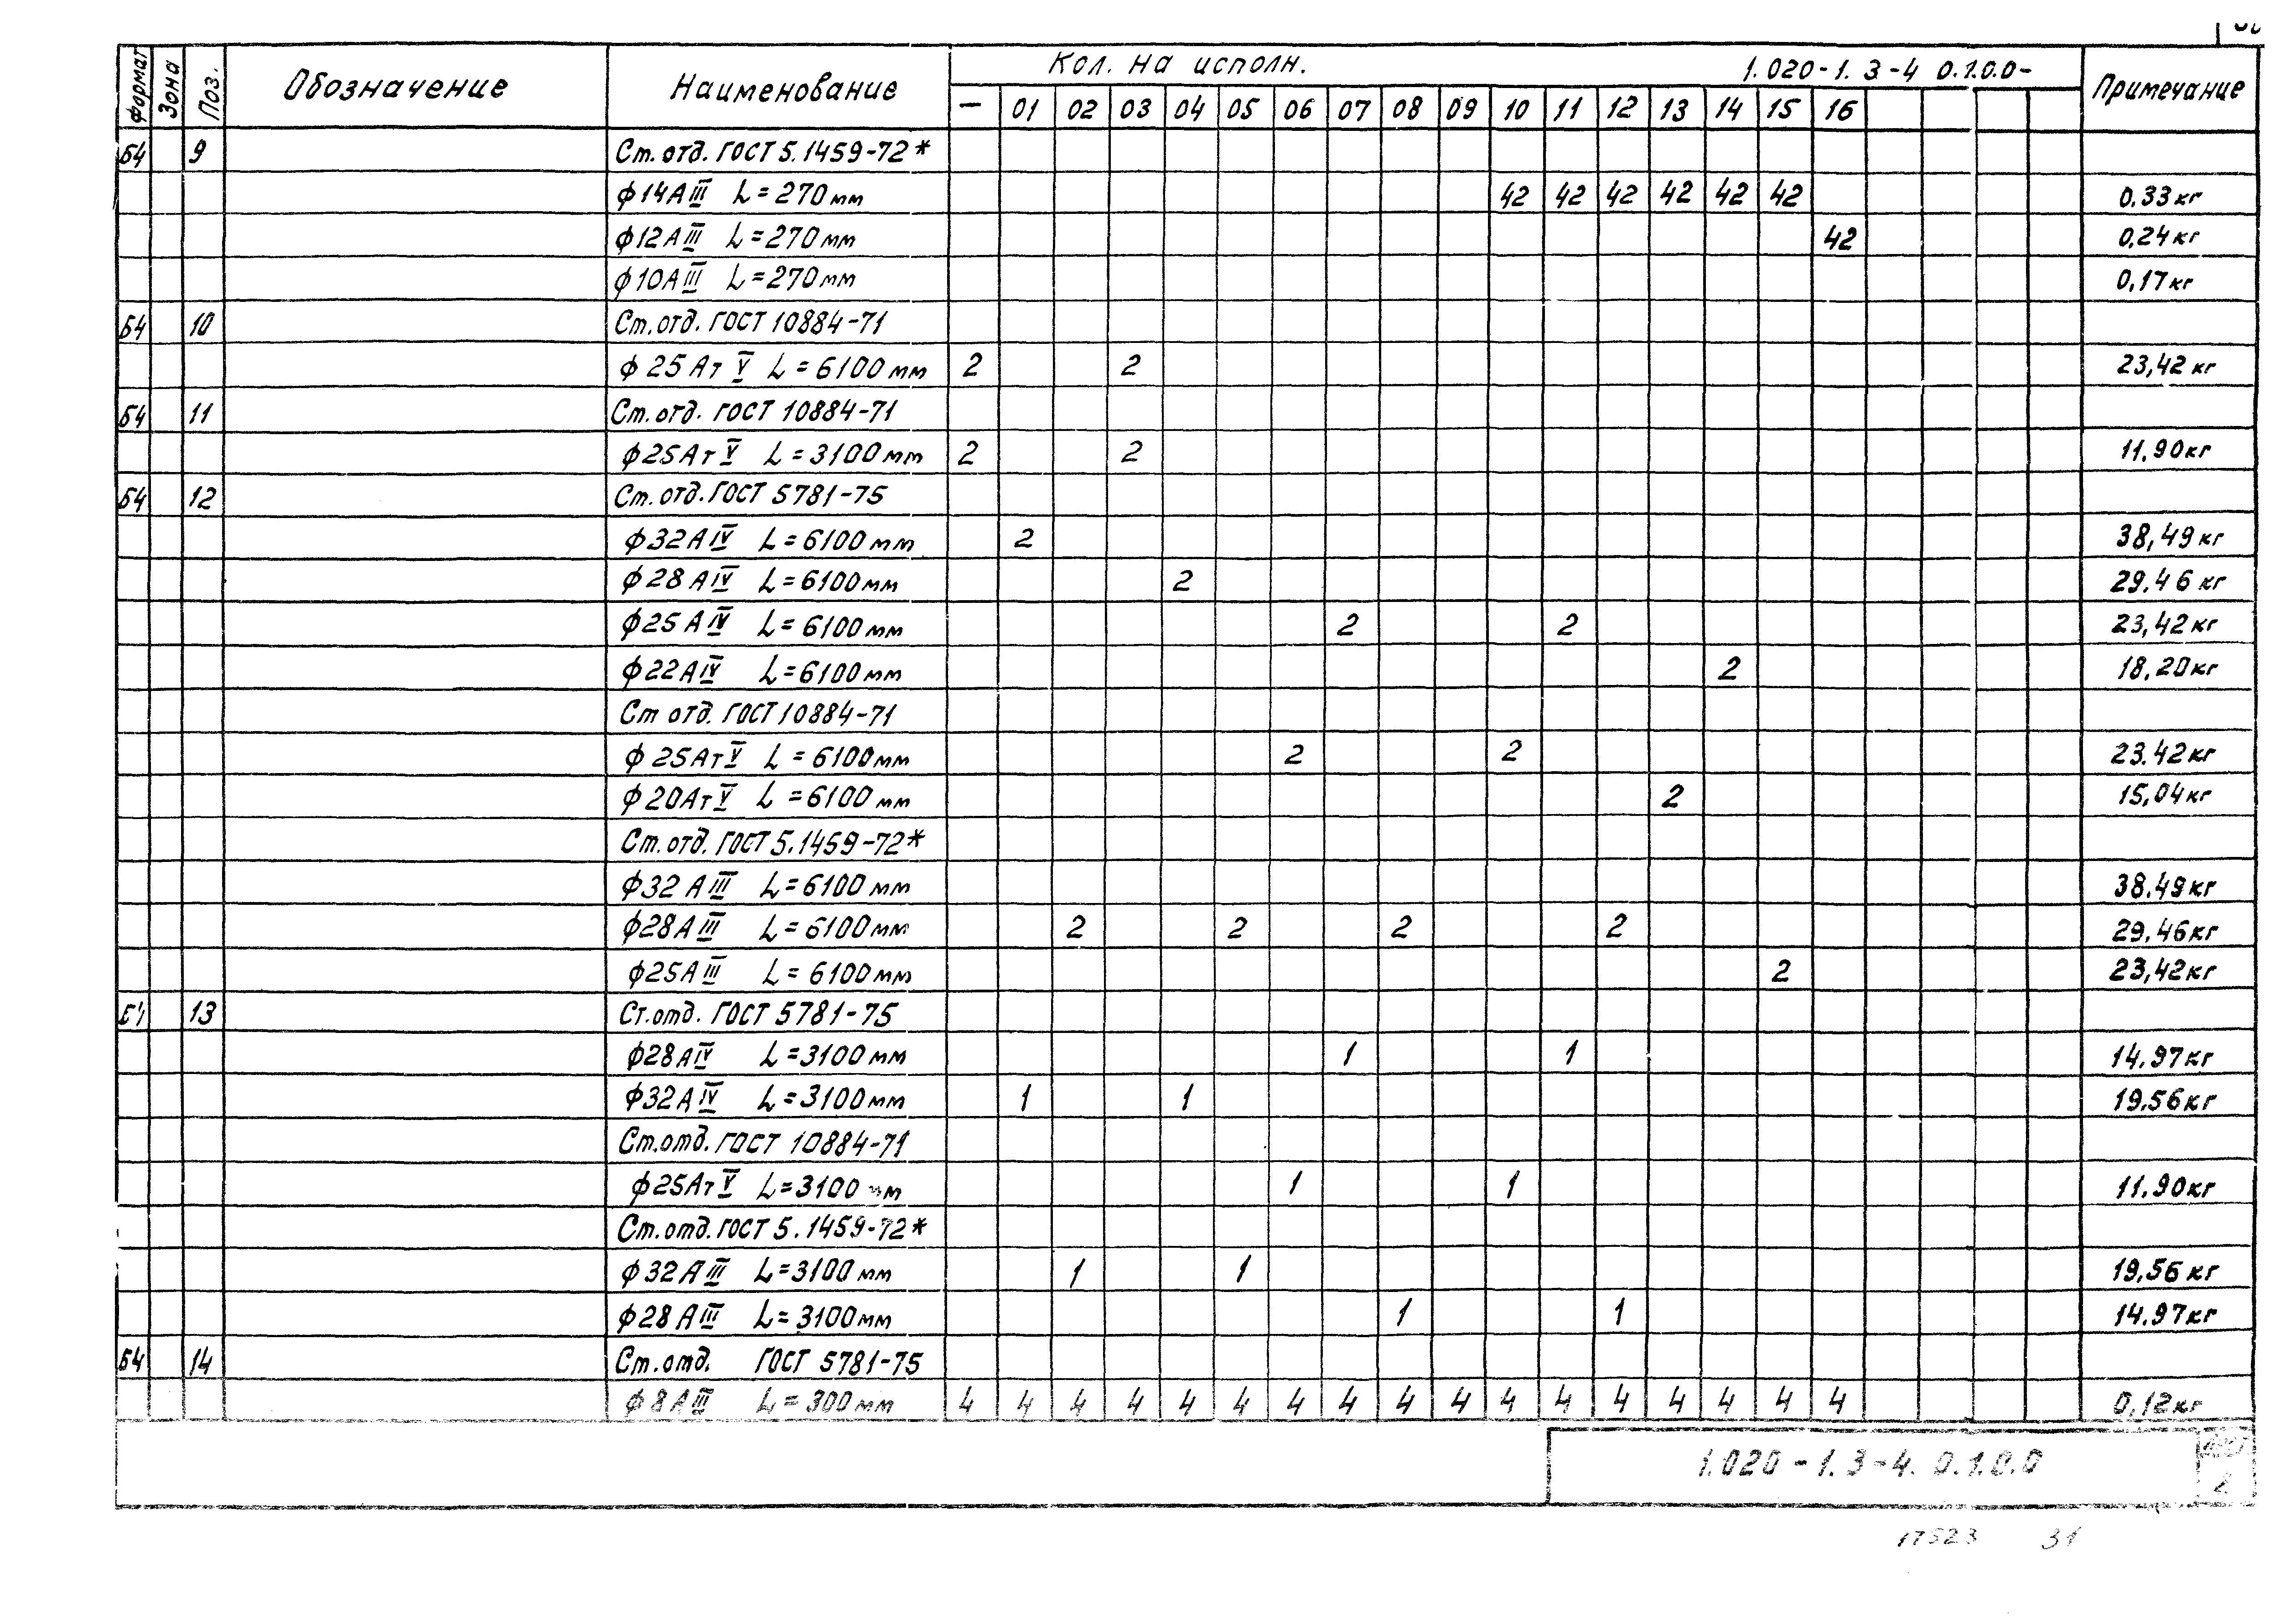 формат Зона Поз. Обозначение Наименование Кол. на исполн. 1.020-1.3-4 0.1.0.0- Примечание
— 01 02 03 04 05 06 07 08 09 10 11 12 13 14 15 16
Б4 9 Ст. отд. ГОСТ 5.1459-72*
ф14АIII L=270мм 42 42 42 42 42 42 0.33кг
ф12АIII L=270мм 42 0,24кг
ф10АIII L=270мм 0,17кг
Б4 10 Ст. отд. ГОСТ 10884-71
ф25АтV L=6100мм 2 2 23,42кг
Б4 11 Ст. отд. ГОСТ 10884-71
ф25АтV L=3100мм 2 2 11.90кг
Б4 12 Ст. отд. ГОСТ 5781-75
ф32АIV L=6100мм 2 38,49кг
ф28АIV L=6100мм 2 29.46кг
ф25АIV L=6100мм 2 2 23,42кг
ф22АIV L=6100мм 2 18,20кг
Ст отд. ГОСТ 10884-71
ф25АтV L=6100мм 2 2 23.42кг
ф20АтV L=6100мм 2 15,04кг
Ст. отд. ГОСТ 5.1459-72*
ф32АIII L=6100мм 38.49кг
ф28АIII L=6100мм 2 2 2 2 29.46кг
ф25АIII L=6100мм 2 23,42кг
Б4 13 Ст. отд. ГОСТ 5781-75
ф28АIV L=3100мм 1 1 14.97кг
ф32АIV L=3100мм 1 1 19.56кг
Ст. отд. ГОСТ 10884-71
ф25АтV L=3100мм 1 1 11.90кг
Ст. отд. ГОСТ 5.1459-72*
ф32АIII L=3100мм 1 1 19,56кг
ф28АIII L=3100мм 1 1 14.97кг
Б4 14 Ст. отд. ГОСТ 5781-75
ф8АIII L=300мм 4 4 4 4 4 4 4 4 4 4 4 4 4 4 4 4 4 0,12кг
1.020-1.3-4. 0.1.0.0 Лист
2
17523 31